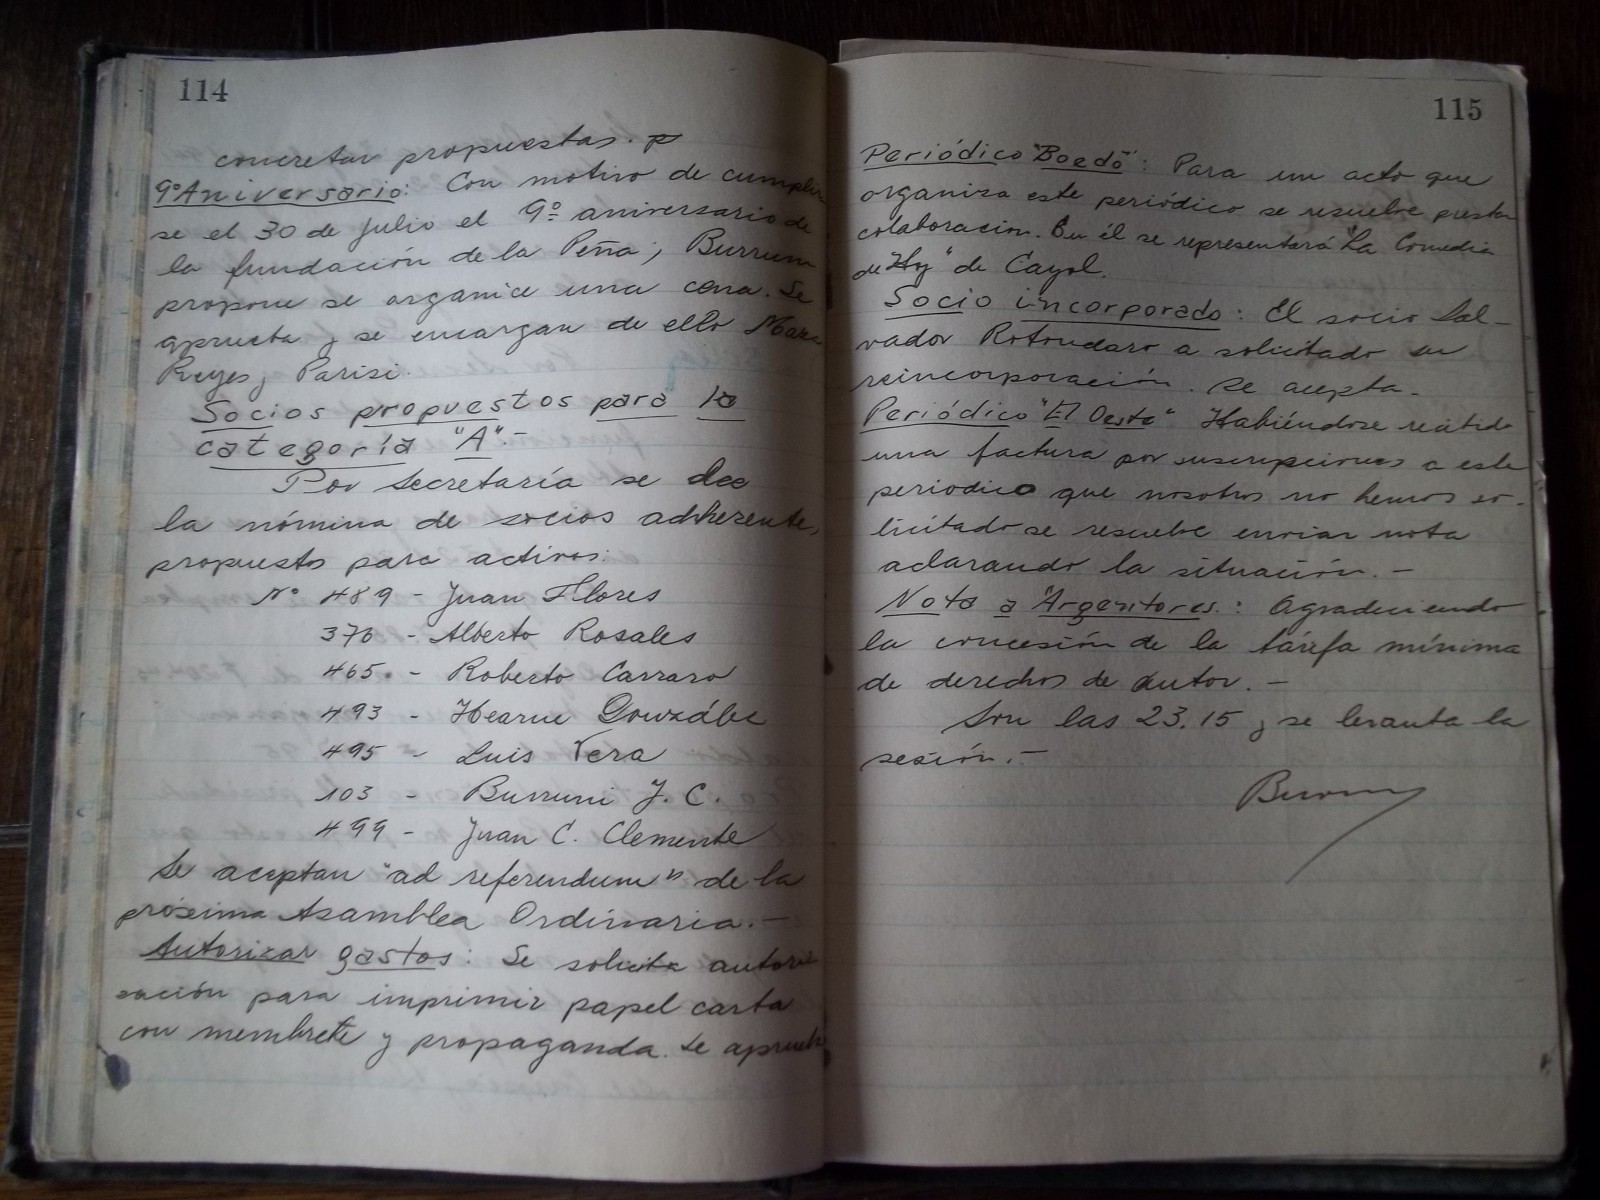 114
concretar propuestas.
9º Aniversario: Con motivo de cumplir
se el 30 de Julio el 9º aniversario de
la fundación de la Peña; Burruni
propone se organice una cena. Se
aprueba y se encargan de ello
Reyes y Parisi.
Socios propuestos para la
categoría "A".-
Por Secretaría se
la nómina de socios adherente,
propuestos para activos:
Nº 489 - Juan Flores
376 - Alberto Rosales
465. - Roberto Carraro
493 - González
495 - Luis Vera
103 - Burruni J. C.
499 - Juan C. Clemente
Se aceptan "ad referendum" de la
próxima Asamblea Ordinaria.-
Autorizar gastos: Se solicita autori
zación para imprimir papel carta
con membrete y propaganda. Se aprueba
115
Periódico "Boedo": Para un acto que
organiza este periódico se resuelve presta
colaboracion. En él se representará "La Comedia
de Hoy" de Cayol.
Socio incorporado: El socio Sal-
vador Rotondaro a solicitado su
reincorporación. se acepta.
Periódico "El Oeste" Habiéndose recibido
una factura por suscripciones a este
periodico que nosotros no hemos so-
licitado se resuelve enviar nota
aclarando la situación.-
Nota a "Argentores.: Agradeciendo
la concesión de la tárifa mínima
de derechos de autor.-
Son las 23.15 y se levanta la
sesión.-